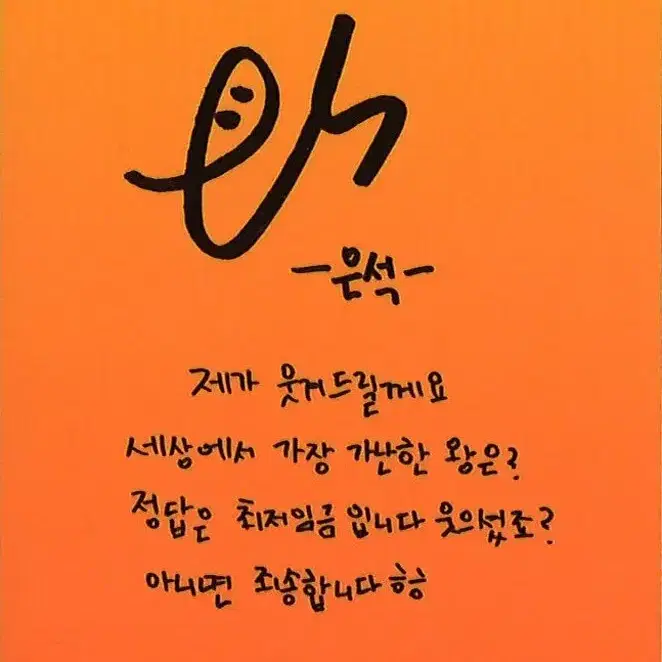 -은석-
제가 웃겨드릴께요
세상에서 가장 가난한 왕은?
정답은 최저임금 입니다 웃으셨죠?
아니면 죄송합니다 ㅎㅎ